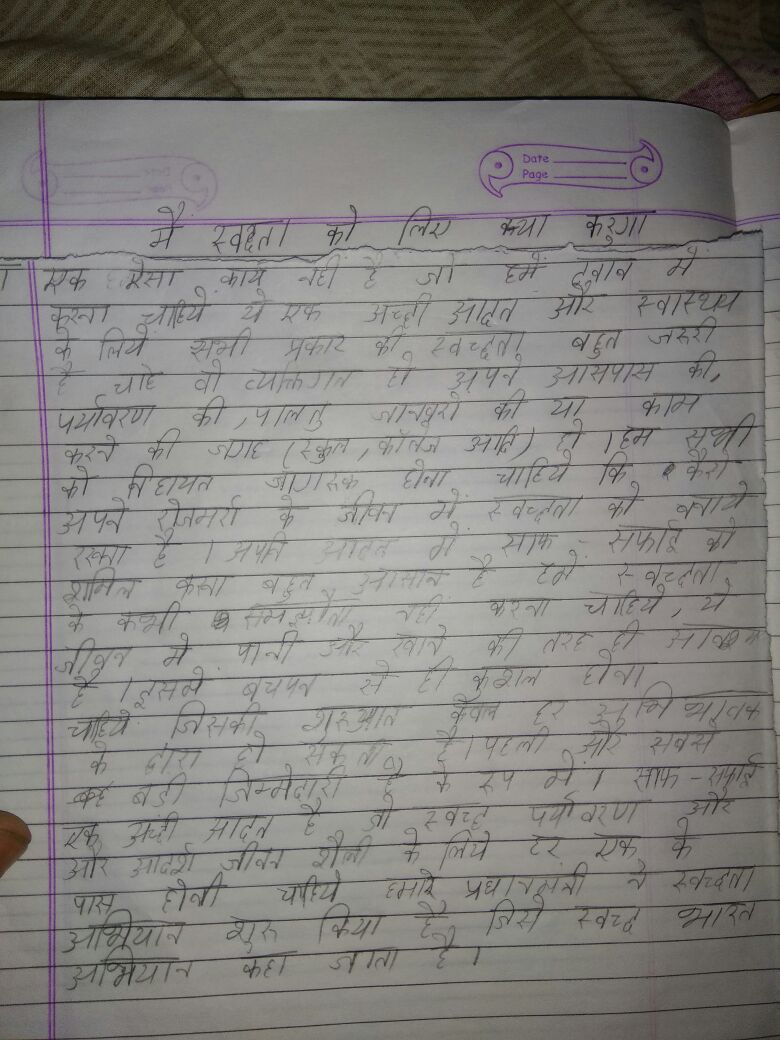 Date
Page
मै स्वच्छता को लिए क्या करुगा
एक ऐसा कार्य नहीं है जो हमें दबाव मे
करना चाहिये ये एक अच्छी आदत और स्वास्थय
के लिये सभी प्रकार की स्वच्छता बहुत जरुरी
है चाहे वो व्यक्तिगत हो अपने आसपास की,
पर्यावरण की, पालतु जानवरो की या काम
करने की जगह (स्कुल, कॉलेज आदि) हो। हम सभी
को निहायत जागरुक होना चाहिये कि कैसे
अपने रोजमर्रा के जीवन में स्वच्छता को बनाये
रखना है। अपनी आदत मे साफ-सफाई को
शामिल करना बहुत आसान है हमे स्वच्छता
के कभी समझौता नहीं करना चाहिये, ये
जीवन मे पानी और खाने की तरह ही
है। इसमे बचपन से ही कुशल होना
चाहिये जिसकी शुरुआत केवल हर अभिभावक
के द्वारा हो सकती है। पहली और सबसे
बडी जिम्मेदारी है के रूप में। साफ-सफाई
एक अच्छी आदत है जो स्वच्छ पर्यावरण और
और आदर्श जीवन शैली के लिये हर एक के
पास होनी चाहिये हमारे प्रधानमंत्री ने स्वच्छता
अभियान शुरु किया है जिसे स्वच्छ भारत
अभियान कहा जाता है।